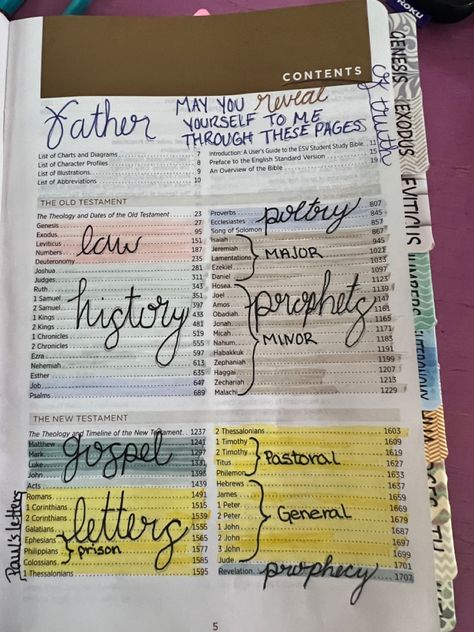 CONTENTS
Father MAY YOU reveal
YOURSELF TO ME
THROUGH THESE PAGES
of truth
List of Charts and Diagrams 7
List of Character Profiles 8
List of Illustrations 9
List of Abbreviations 10
Introduction: A User's Guide to the ESV Student Study Bible 11
Preface to the English Standard Version 15
An Overview of the Bible 19
THE OLD TESTAMENT
The Theology and Dates of the Old Testament 23
Genesis 27
Exodus 95
Leviticus 151
Numbers 187
Deuteronomy 235
law
Joshua 281
Judges 311
Ruth 343
1 Samuel 351
2 Samuel 397
1 Kings 433
2 Kings 481
1 Chronicles 519
2 Chronicles 555
Ezra 597
Nehemiah 613
Esther 635
history
Job 647
Psalms 689
Proverbs 807
Ecclesiastes 845
Song of Solomon 857
poltry
Isaiah 867
Jeremiah 945
Lamentations 1021
Ezekiel 1033
Daniel 1097
MAJOR
Hosea 1123
Joel 1139
Amos 1147
Obadiah 1161
Jonah 1165
Micah 1171
Nahum 1183
Habakkuk 1191
Zephaniah 1199
Haggai 1207
Zechariah 1213
Malachi 1229
prophets
MINOR
THE NEW TESTAMENT
The Theology and Timeline of the New Testament 1237
Matthew 1241
Mark 1297
Luke
John
gospel
Acts 1439
Romans 1491
1 Corinthians 1515
2 Corinthians 1539
Galatians 1555
Ephesians 1565
Philippians 1577
Colossians 1585
1 Thessalonians 1595
letters
prison
Paul's letters
2 Thessalonians 1603
1 Timothy 1609
2 Timothy 1619
Titus 1627
Philemon 1633
Pastoral
Hebrews 1637
James 1659
1 Peter 1669
2 Peter 1679
1 John 1687
2 John 1697
3 John 1699
Jude 1701
General
Revelation 1707
prophecy
5
GENESIS
EXODUS
LEVITICUS
NUMBERS
ROKU